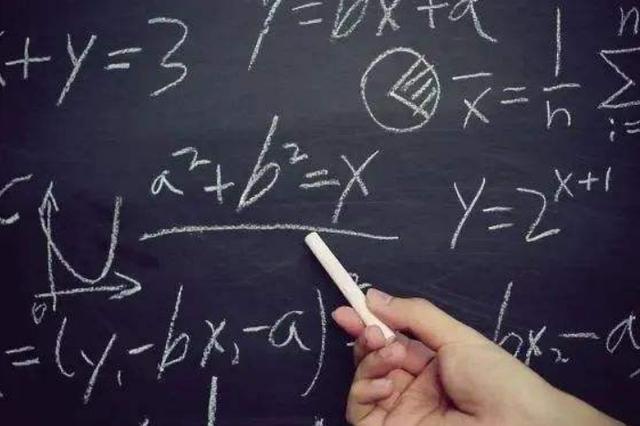 y=bx+a
x+y=3
x̄=1/n ∑ n i=
a²+b²=x
y=2^(x+1)
0
=(y₁-bx₁-a)² bx₂-a